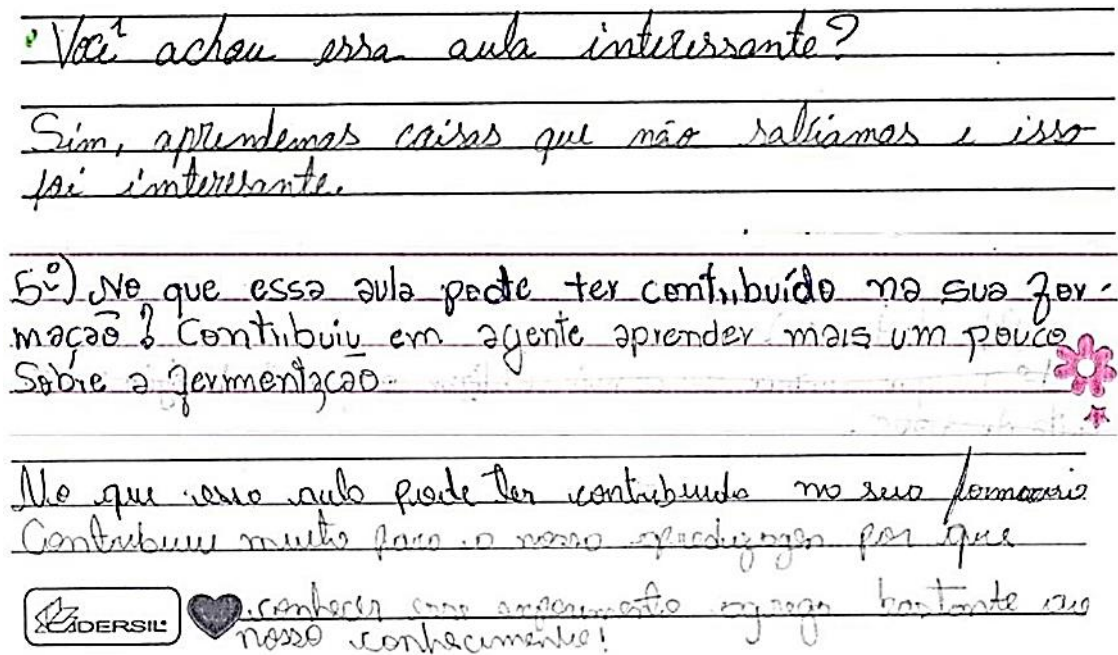 Você achou essa aula interessante?
Sim, aprendemos coisas que não sabiamos e isso
foi interesante.
5º) No que essa aula pode ter contribuído na sua for-
mação? Contribuiu em agente aprender mais um pouco
Sobre a fermentação.
No que essa aula pode ter contribuido na sua formação
Contribuiu muito para a nossa aprendizagen por que
conhecer esse experimento agrega bastante
nosso conhecimento!
DERSIL